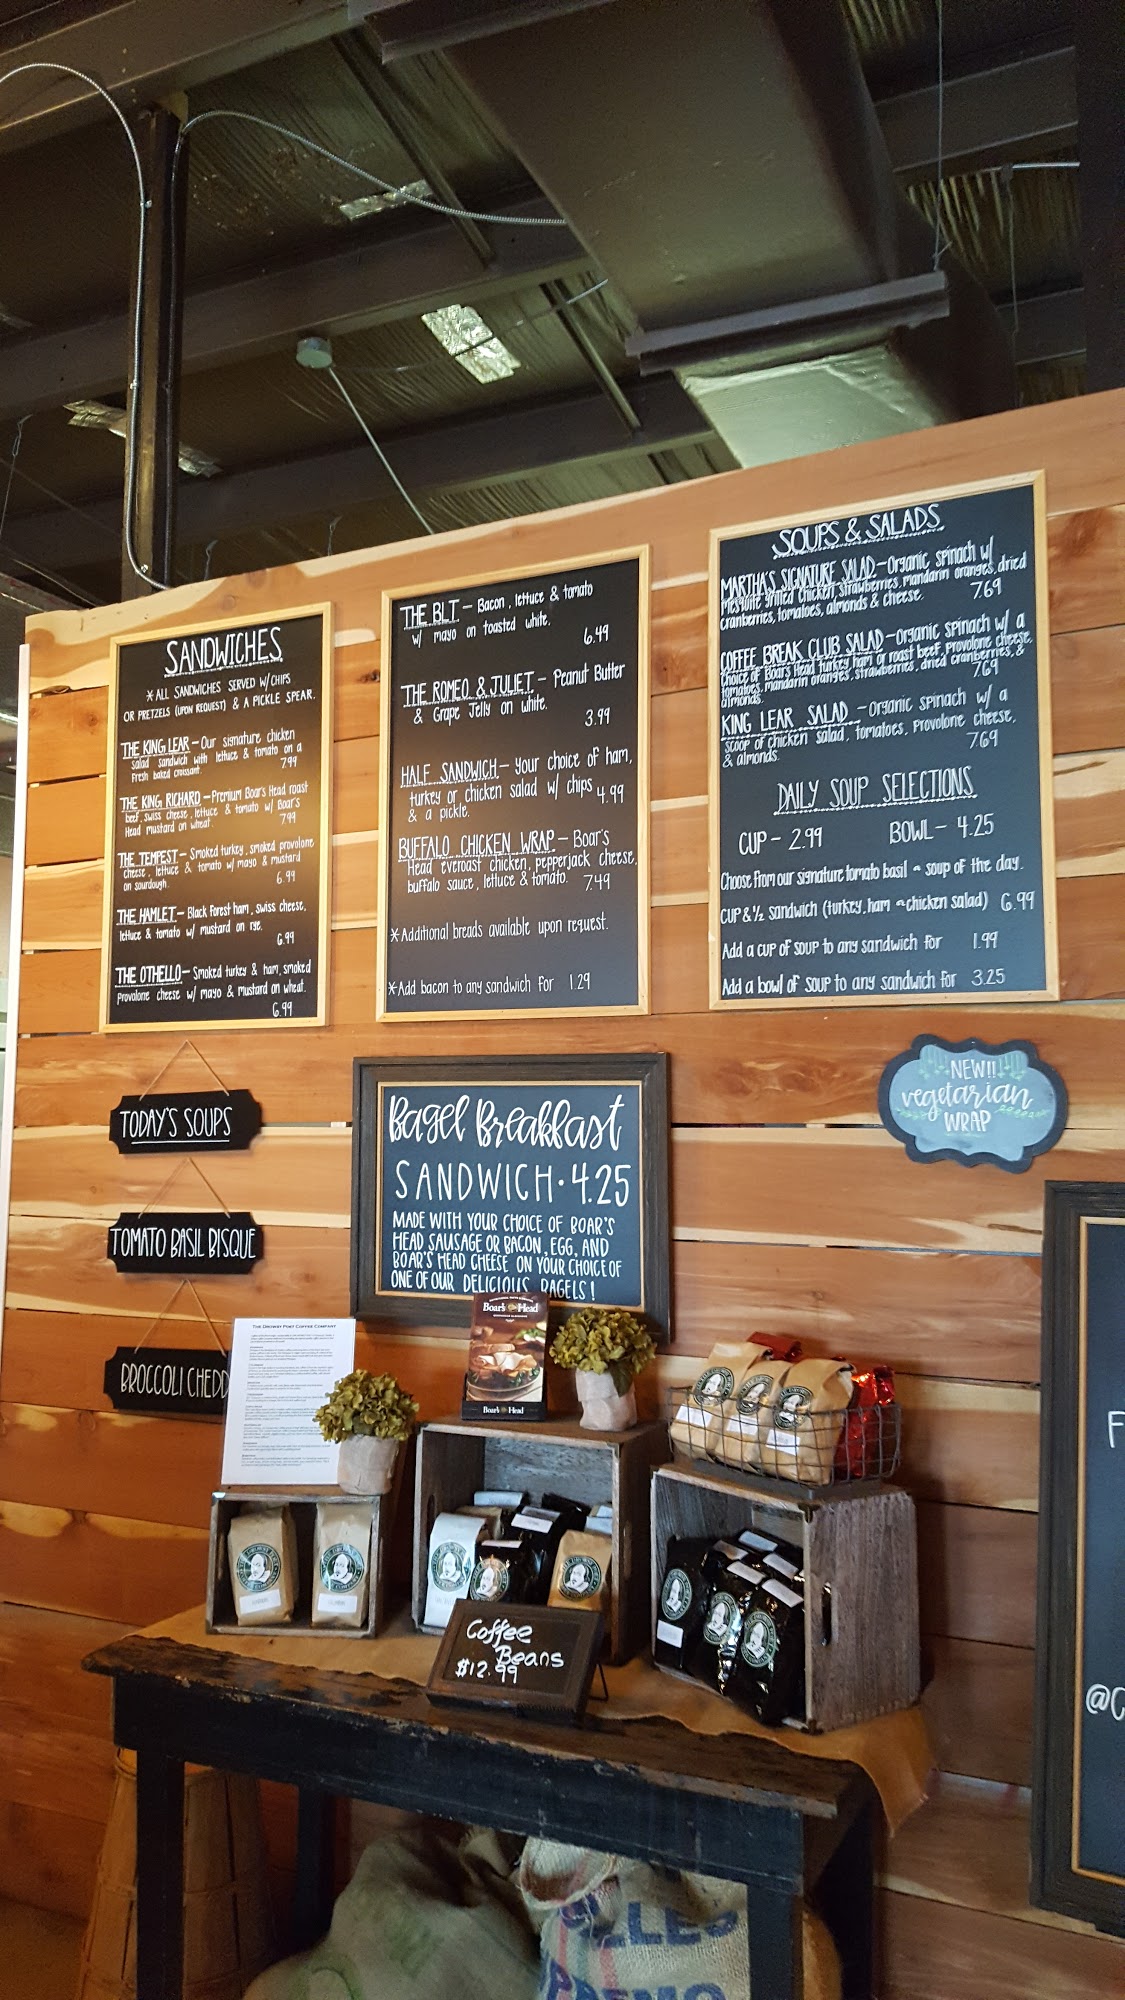 SANDWICHES
* ALL SANDWICHES SERVED W/CHIPS
OR PRETZELS (UPON REQUEST) & A PICKLE SPEAR.
THE KING LEAR - Our signature chicken
salad sandwich with lettuce & tomato on a
Fresh baked croissant. 7.99
THE KING RICHARD - Premium Boar's Head roast
beef, swiss cheese, lettuce & tomato w/ Boar's
Head mustard on wheat. 7.99
THE TEMPEST - Smoked turkey, smoked provolone
cheese, lettuce & tomato w/ mayo & mustard
on sourdough. 6.99
THE HAMLET - Black Forest ham, swiss cheese,
lettuce & tomato w/ mustard on rye.
6.99
THE OTHELLO - Smoked turkey & ham, smoked
Provolone cheese w/ mayo & mustard on wheat.
6.99
THE BLT - Bacon, lettuce & tomato
w/ mayo on toasted white.
6.49
THE ROMEO & JULIET - Peanut Butter
& Grape Jelly on white.
3.99
HALF SANDWICH - your choice of ham,
turkey or chicken salad w/ chips
& a pickle. 4.99
BUFFALO CHICKEN WRAP - Boar's
Head everoast chicken, pepperjack cheese,
buffalo sauce, lettuce & tomato. 7.49
* Additional breads available upon request.
* Add bacon to any sandwich for 1.29
SOUPS & SALADS
MARTHA'S SIGNATURE SALAD - Organic spinach w/
Mesquite grilled chicken, strawberries, mandarin oranges, dried
cranberries, tomatoes, almonds & cheese. 7.69
COFFEE BREAK CLUB SALAD - Organic spinach w/ a
choice of Boar's Head turkey, ham or roast beef, Provolone cheese,
tomatoes, mandarin oranges, strawberries, dried cranberries, &
almonds. 7.69
KING LEAR SALAD - Organic spinach w/ a
scoop of chicken salad, tomatoes, Provolone cheese,
& almonds. 7.69
DAILY SOUP SELECTIONS
CUP - 2.99 BOWL - 4.25
Choose from our signature tomato basil or soup of the day.
CUP & 1/2 sandwich (turkey, ham or chicken salad) 6.99
Add a cup of soup to any sandwich for 1.99
Add a bowl of soup to any sandwich for 3.25
NEW!!
vegetarian
WRAP
TODAY'S SOUPS
TOMATO BASIL BISQUE
BROCCOLI CHEDD
Bagel Breakfast
SANDWICH • 4.25
MADE WITH YOUR CHOICE OF BOAR'S
HEAD SAUSAGE OR BACON, EGG, AND
BOAR'S HEAD CHEESE ON YOUR CHOICE OF
ONE OF OUR DELICIOUS BAGELS!
THE DROWSY POET COFFEE COMPANY
Boar's Head
Boar's Head
Coffee
Beans
$12.99
F
@C